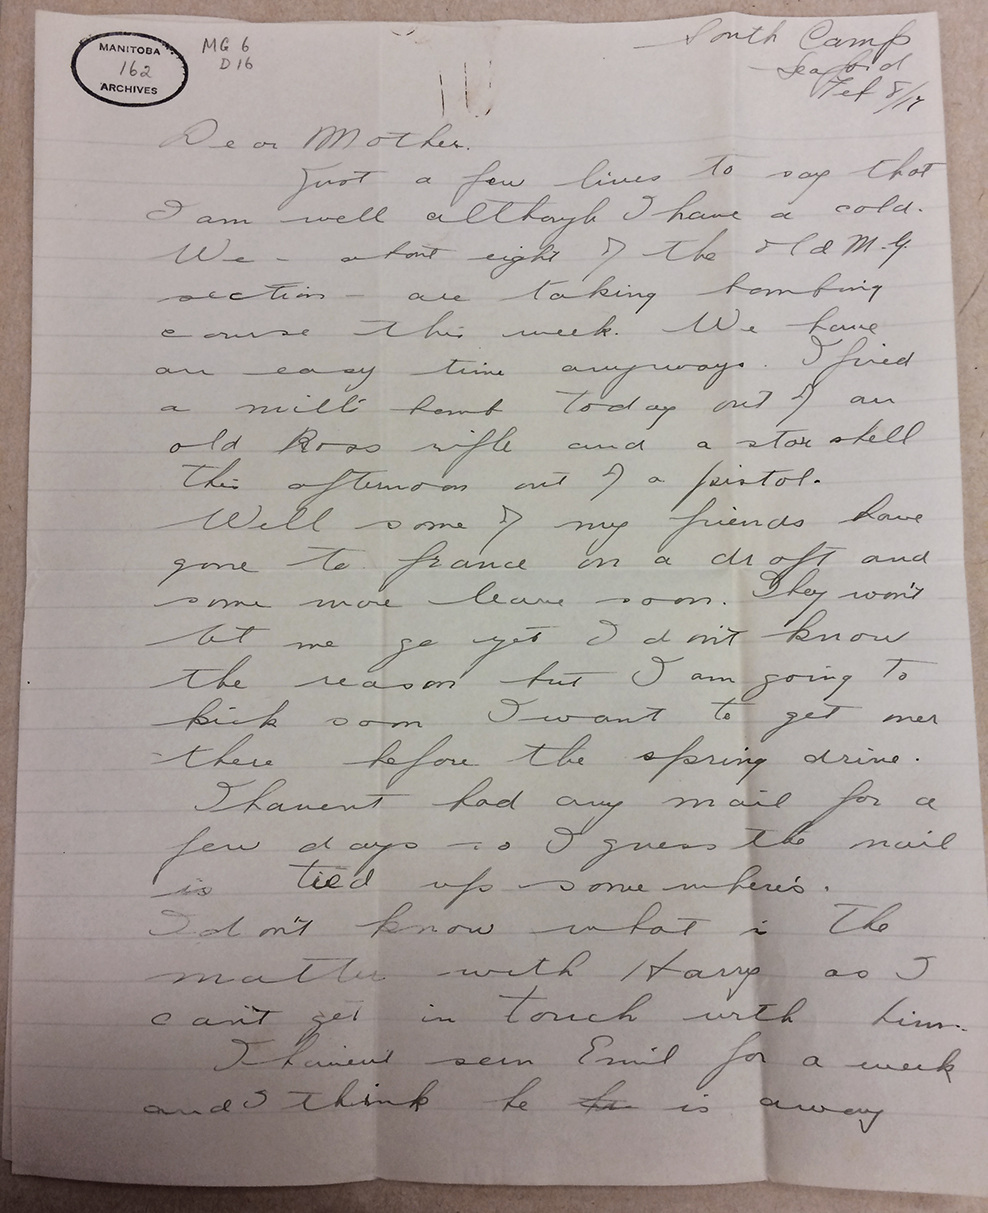 MANITOBA
162
ARCHIVES
MG 6
D16
South Camp
Seaford
Feb 8/17
Dear Mother.
Just a few lines to say that
I am well although I have a cold.
We - about eight of the old M.G.
section - are taking bombing
course this week. We have
an easy time anyways. I fired
a mills bomb today out of an
old Ross rifle and a star shell
this afternoon out of a pistol.
Well some of my friends have
gone to france on a draft and
some more leave soon. They won't
let me go yet I don't know
the reason but I am going to
kick soon I want to get over
there before the spring drive.
I havent had any mail for a
few days so I guess the mail
is tied up some where's.
I don't know what is the
matter with Harry as I
can't get in touch with him.
I havent seen Emil for a week
and I think he is away